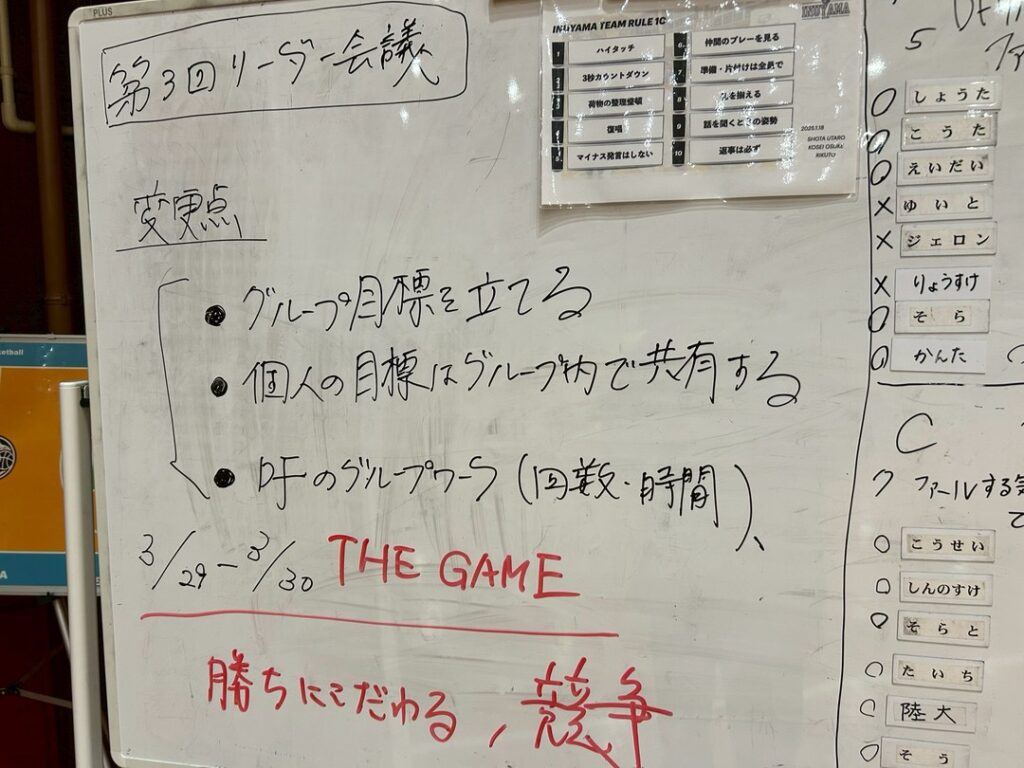 PLUS
第3回リーダー会議
INUYAMA TEAM RULE 10
INUYAMA
1 ハイタッチ
2 3秒カウントダウン
荷物の整理整頓
復唱
マイナス発言はしない
6 仲間のプレーを見る
7 準備・片付けは全員で
8 を揃える
9 話を聞くときの姿勢
10 返事は必ず
2025.1.18
SHOTA UTARO
KOSEI OSUKE
RIKUTO
変更点
● グループ目標を立てる
● 個人の目標はグループ内で共有する
● DFのグループワーク (回数・時間)、
3/29-3/30 THE GAME
勝ちにこだわる, 競争
5
○ しょうた
○ こうた
○ えいだい
× ゆいと
× ジェロン
× りょうすけ
○ そら
○ かんた
C
ファールする
○ こうせい
○ しんのすけ
○ そらと
○ たいち
○ 陸大
○ そう